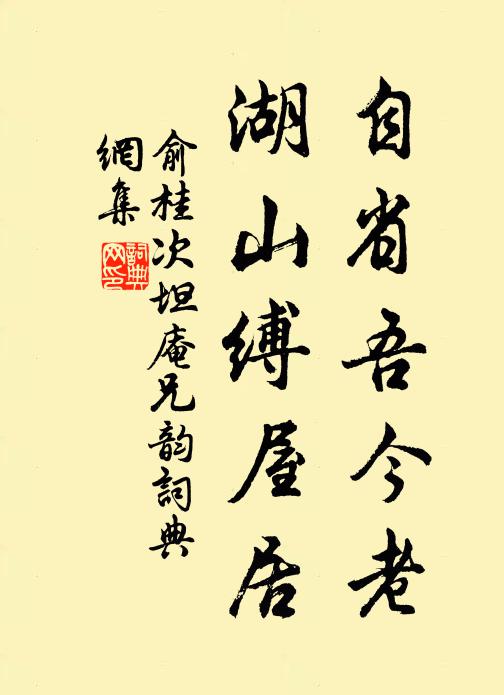 自省吾今老
湖山縛屋居
俞桂次坦庵兄韵詞典
網集
詞典
网印